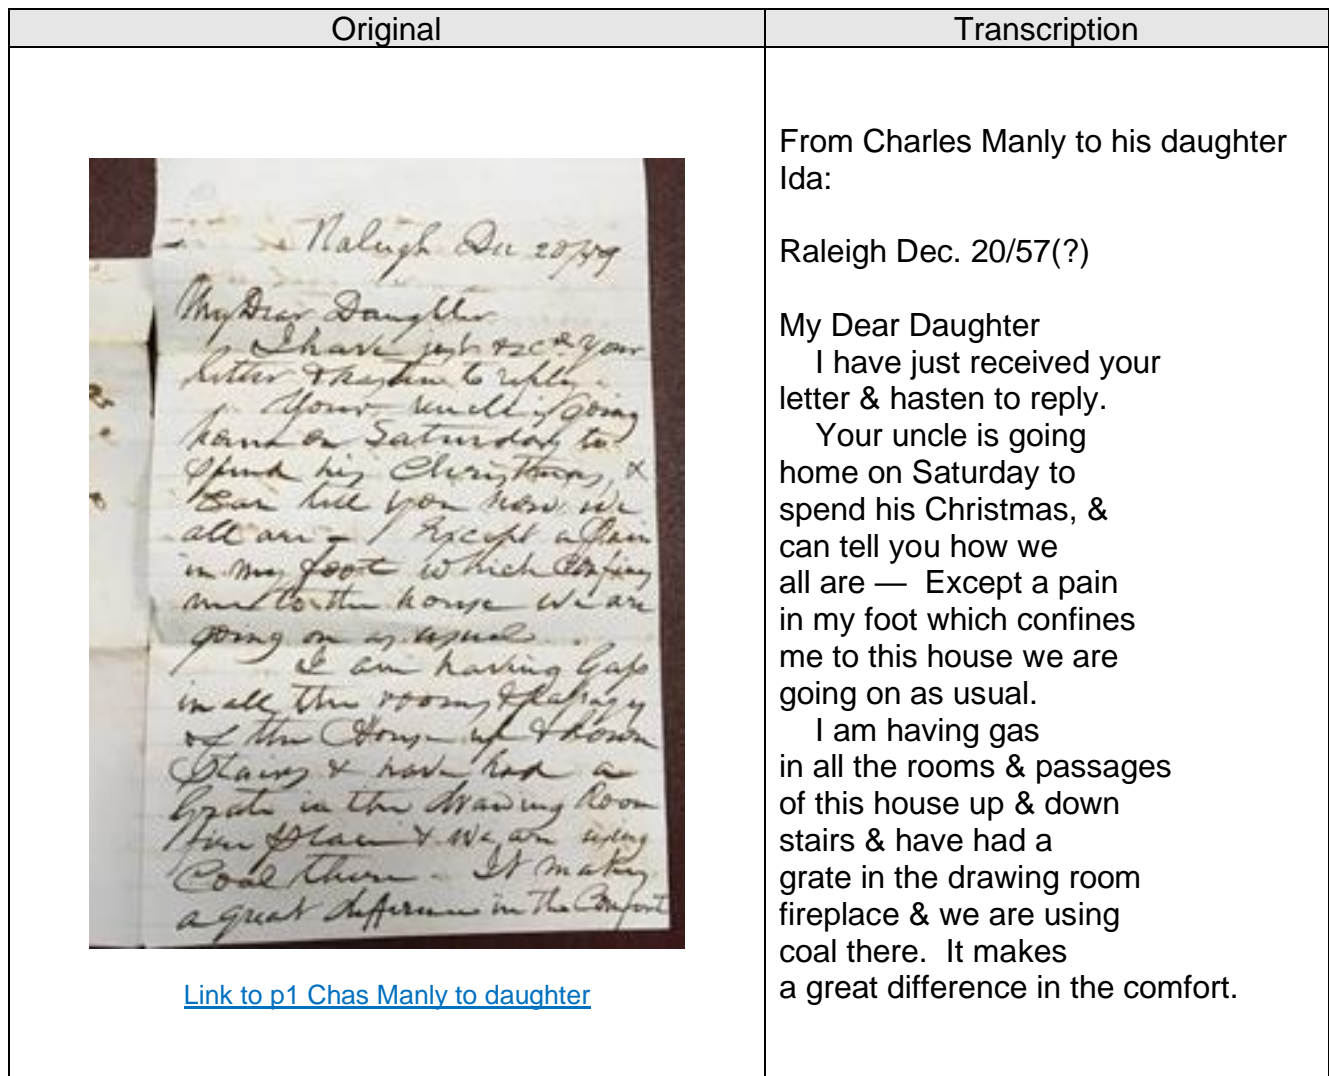 Original
Transcription
Raleigh Dec 20/59
My Dear Daughter
I have just recd your
letter & hasten to reply.
Your uncle is going
home on Saturday to
spend his Christmas, &
can tell you how we
all are - Except a pain
in my foot which confines
me to the house we are
going on as usual.
I am having Gas
in all the rooms & passages
of the House up & down
Stairs & have had a
Grate in the drawing Room
fire place & we are using
Coal there - It makes
a great difference in the Comfort
Link to p1 Chas Manly to daughter
From Charles Manly to his daughter
Ida:
Raleigh Dec. 20/57(?)
My Dear Daughter
I have just received your
letter & hasten to reply.
Your uncle is going
home on Saturday to
spend his Christmas, &
can tell you how we
all are — Except a pain
in my foot which confines
me to this house we are
going on as usual.
I am having gas
in all the rooms & passages
of this house up & down
stairs & have had a
grate in the drawing room
fireplace & we are using
coal there. It makes
a great difference in the comfort.